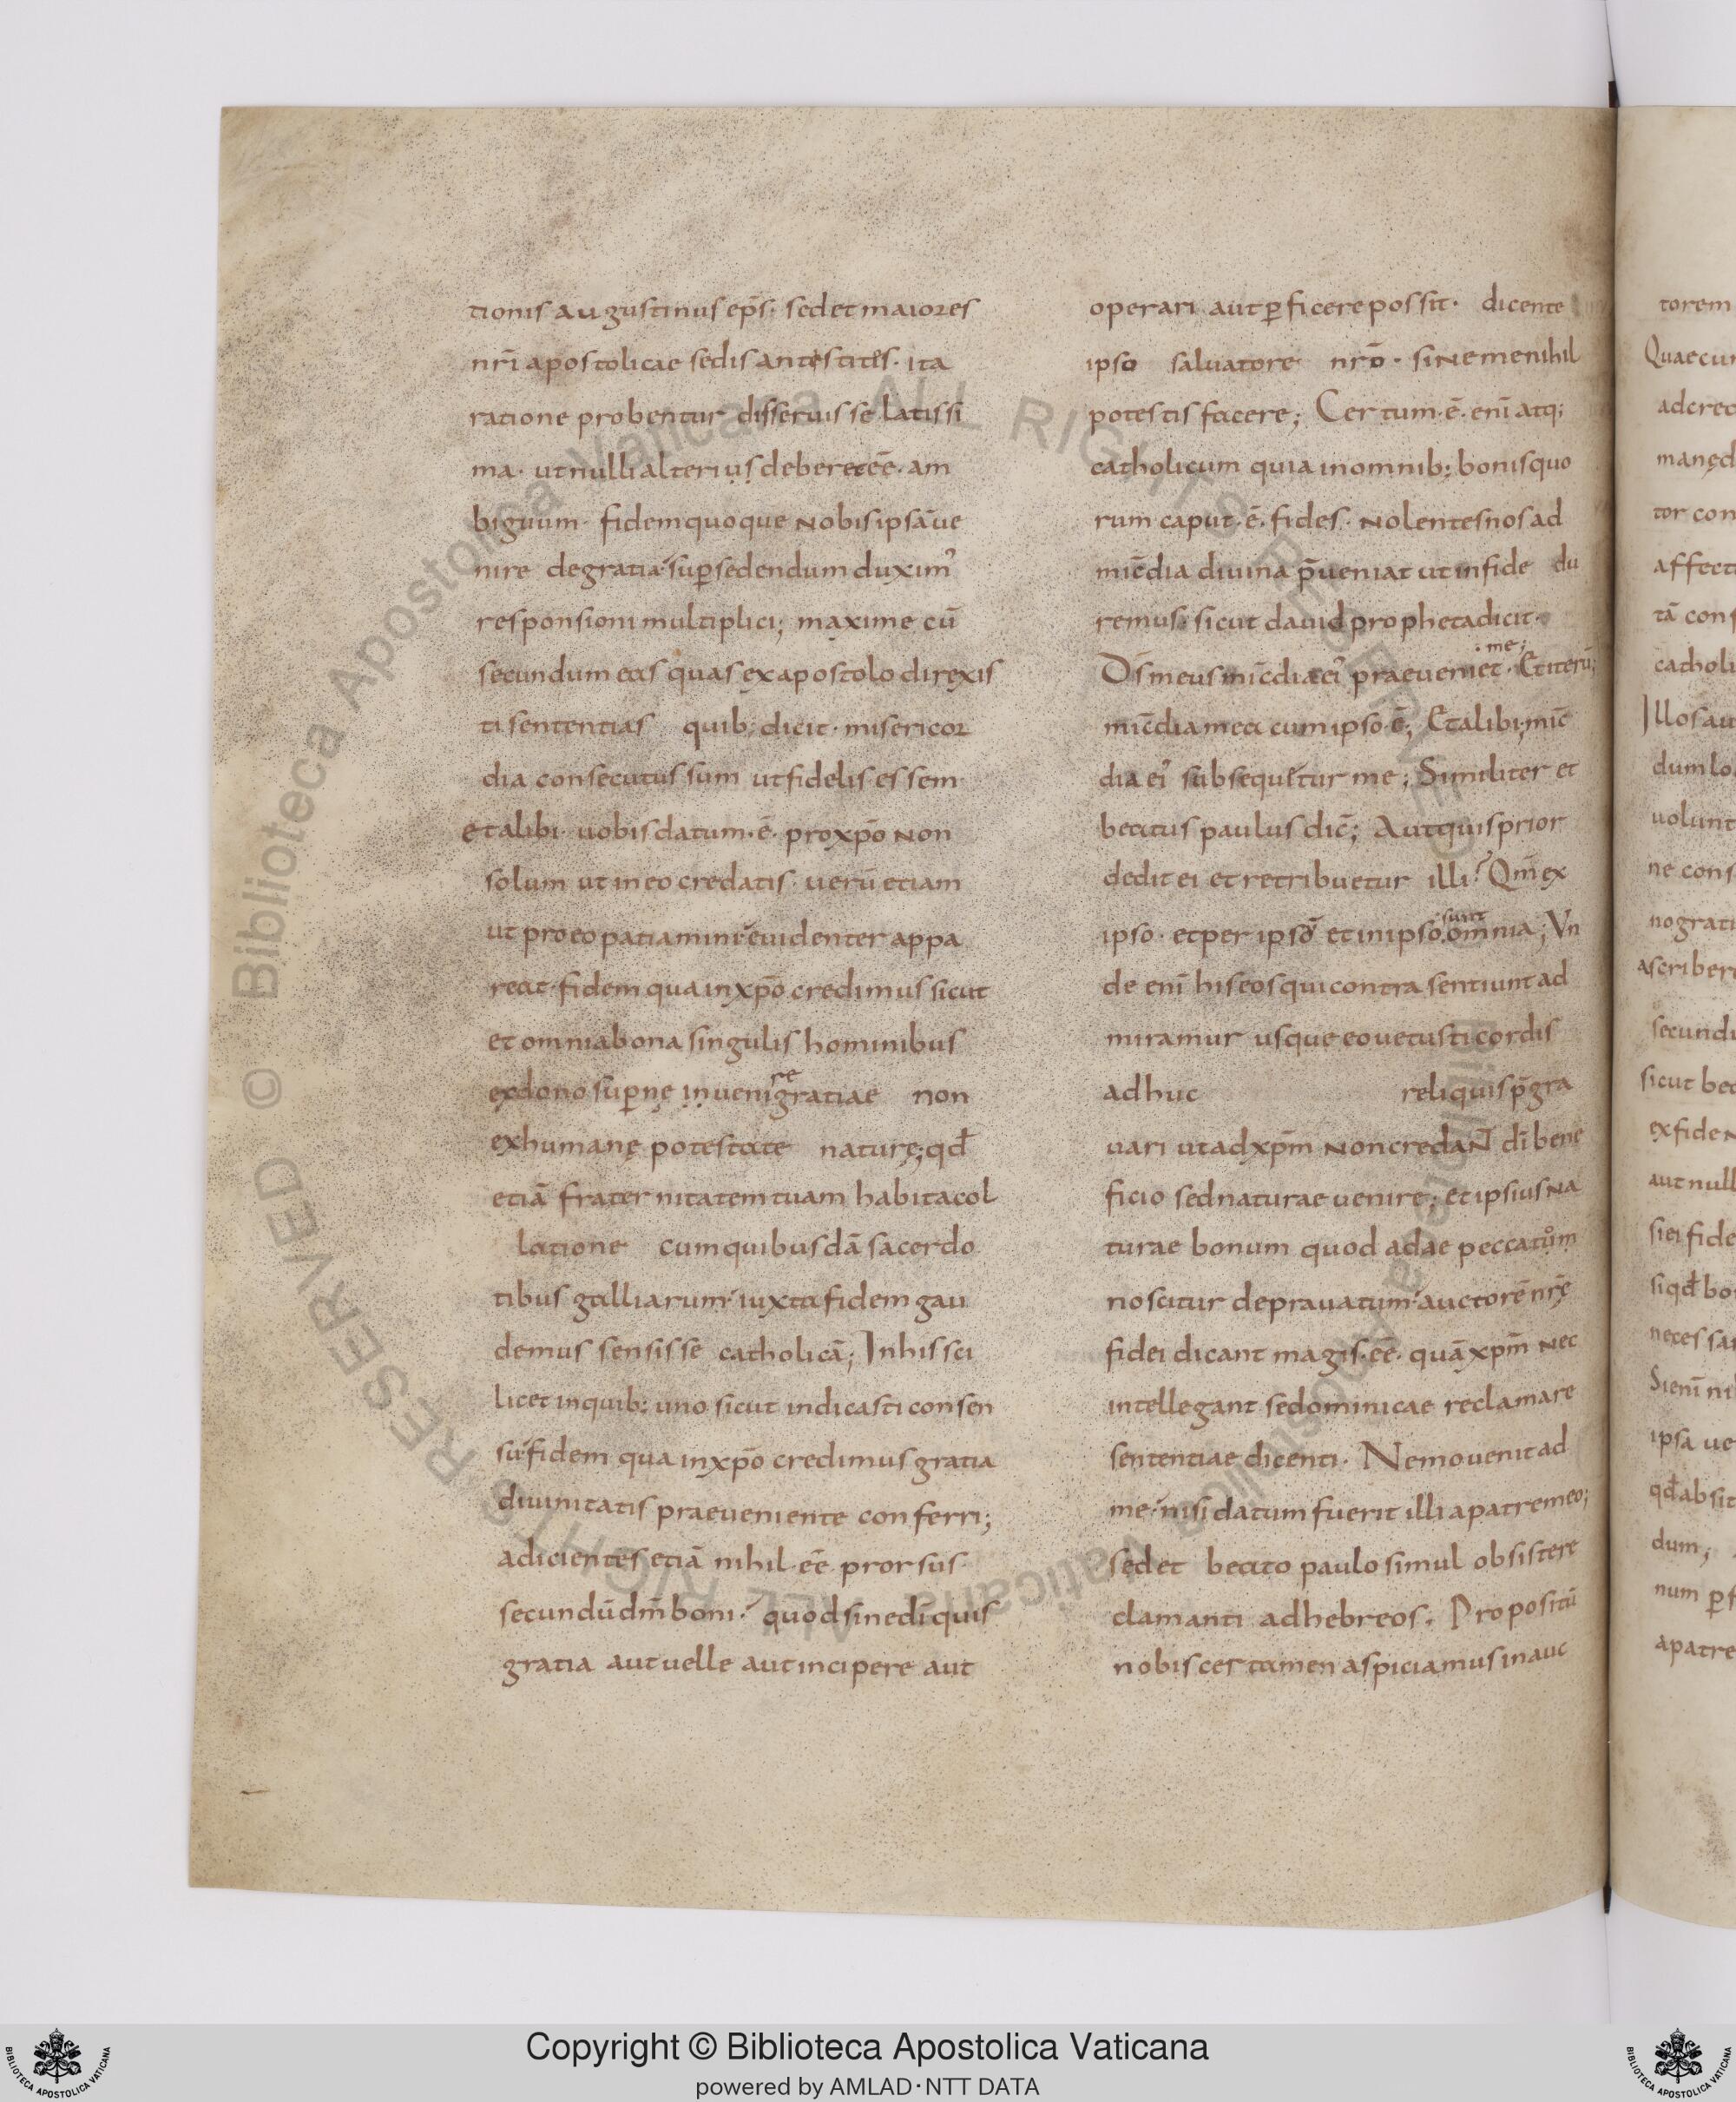 tionis augustinus ep̄s· sed et maiores
nr̄i apostolicae sedis antestites· ita
ratione probentur disseruisse latissi
ma· ut nulli alterius deberet eē· am
biguum· fidem quoque nobis ipsā ue
nire de gratia sup̱sedendum duxim᾽
responsioni multiplici; maxime cū
secundum eas quas ex apostolo direxis
ti sententias quib; dicit· misericor
dia consecutus sum ut fidelis essem
et alibi· uobis datum·ē· pro xp̄o non
solum ut in eo credatis· uerū etiam
ut pro eo patiamini euidenter appa
reat· fidem qua in xp̄o credimus sicut
et omnia bona singulis hominibus
re
ex dono sup̱nę inueni gratiae non
ex humanę potestate naturę; qđ
etiā fraternitatem tuam habita col
latione cum quibusdā sacerdo
tibus galliarum iuxta fidem gau
demus sensisse catholicā; In his sci
licet in quib; uno sicut indicasti consen
su fidem qua in xp̄o credimus gratia
diuinitatis praeueniente conferri;
adicientes etiā nihil eē prorsus
secundū dm̄ boni· quod sine dī quis
gratia aut uelle aut incipere aut
operari aut p̱ficere possit· dicente
ipso saluatore nrō· sine me nihil
potestis facere; Certum·ē· enī atq;
catholicum quia in omnib; bonis quo
rum caput·ē· fides· nolentes nos ad
mic̄dia diuina p̄ueniat ut in fide du
remus· sicut dauid propheta dicit·
·me;
Ds̄ meus mic̄dia ei᾽ praeueniet· Et iterū;
mic̄dia mea cum ipso·ē; Et alibi; mic̄
dia ei᾽ subsequetur me; Similiter et
beatus paulus dic̄; Aut quis prior
dedit ei et retribuetur illi? Qm̄ ex
·sunt
ipso· et per ipsō et in ipso omnia; Vn
de enī his eos qui contra sentiunt ad
miramur usque eo uetusti cordis
adhuc reliquis p̄gra
uari ut ad xpm̄ non credant dī bene
ficio sed naturae uenire; et ipsius na
turae bonum quod adae peccatům
noscitur deprauatum auctorē nr̄ę
fidei dicant magis·eē· quā xpm̄ nec
intellegant se dominicae reclamare
sententiae dicenti· Nemo uenit ad
me· nisi datum fuerit illi a patre meo;
sed et beato paulo simul obsistere
clamanti ad hebreos. Propositū
nobis certamen aspiciamus in auc
torem
Quaecun
ad cred
manęd
tor con
affect
tā cons
catholi
Illos au
dum lo
uolunt
ne cons
no grati
ascriber
secundu
sicut bea
ex fide n
aut null
si ei fide
si qđ bo
necessar
Si enī ni
ipsa ue
qđ absit
dum;
num p̱f
a patre